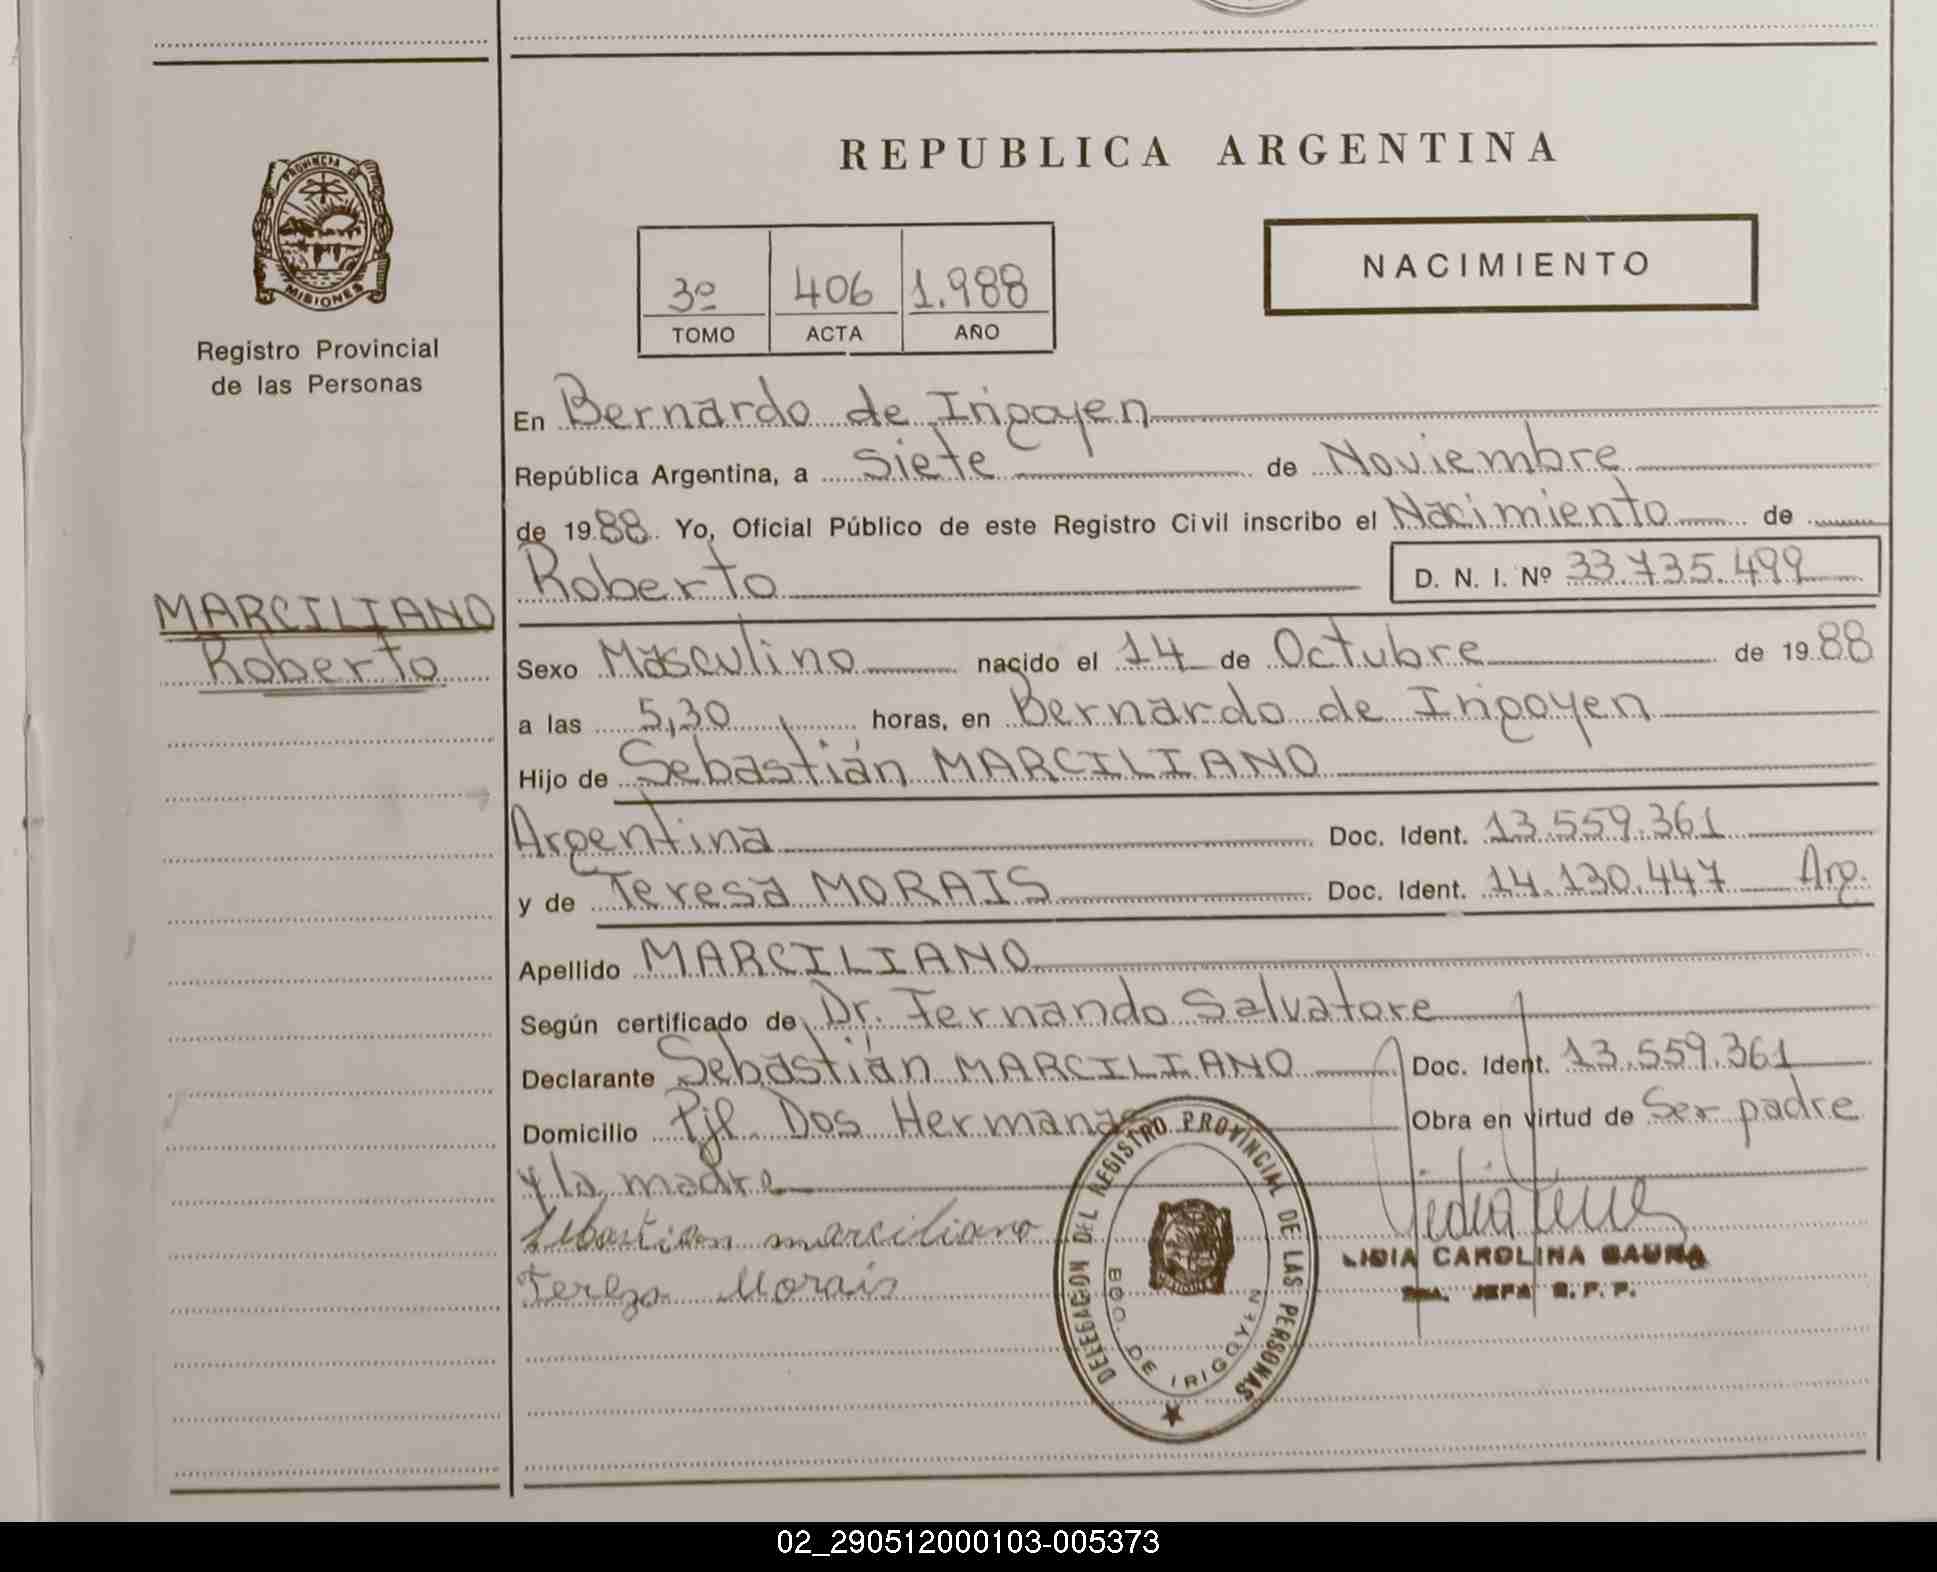 PROVINCIA DE
MISIONES
Registro Provincial
de las Personas
MARCILIANO
Roberto
REPUBLICA ARGENTINA
3º 406 1.988
TOMO ACTA AÑO
NACIMIENTO
En Bernardo de Irigoyen
República Argentina, a Siete de Noviembre
de 1988. Yo, Oficial Público de este Registro Civil inscribo el Nacimiento de
Roberto D. N. I. Nº 33.735.499
Sexo Masculino nacido el 14 de Octubre de 1988
a las 5,30 horas, en Bernardo de Irigoyen
Hijo de Sebastián MARCILIANO
Argentina Doc. Ident. 13.559.361
y de Teresa MORAIS Doc. Ident. 14.130.447 Arg.
Apellido MARCILIANO
Según certificado de Dr. Fernando Salvatore
Declarante Sebastián MARCILIANO Doc. Ident. 13.559.361
Domicilio Pjl. Dos Hermanas Obra en virtud de Ser padre
y la madre
Sebastian marciliano
Tereza Morais
DELEGACION DEL REGISTRO PROVINCIAL DE LAS PERSONAS
BDO. DE IRIGOYEN
LIDIA CAROLINA GAUNA
JEFA
02_290512000103-005373